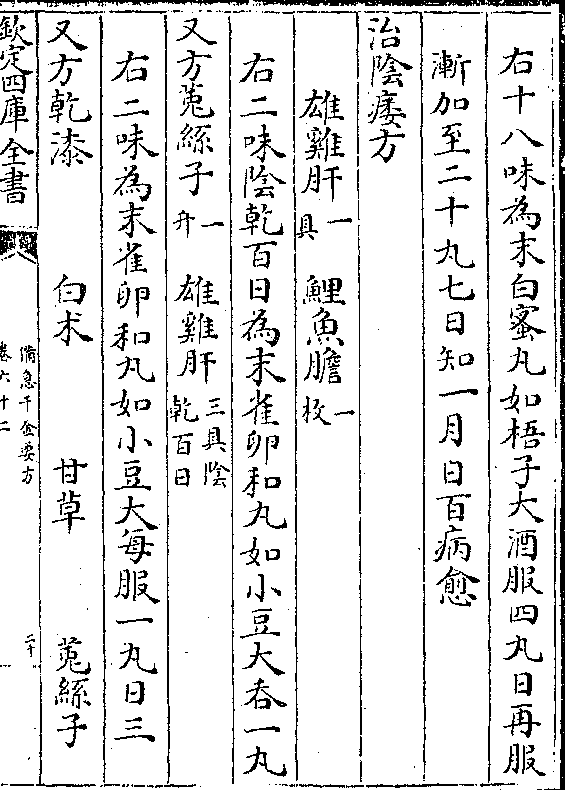 右十八味為末白蜜丸如梧子大酒服四丸日再服
漸加至二十丸七日知一月日百病愈
治陰痿方
雄雞肝一具 鯉魚膽一枚
右二味陰乾百日為末雀卵和丸如小豆大吞一丸
又方菟絲子一升 雄雞肝三具陰乾百日
右二味為末雀卵和丸如小豆大每服一丸日三
又方乾漆 白朮 甘草 菟絲子
欽定四庫全書
備急千金要方
卷六十二
二十